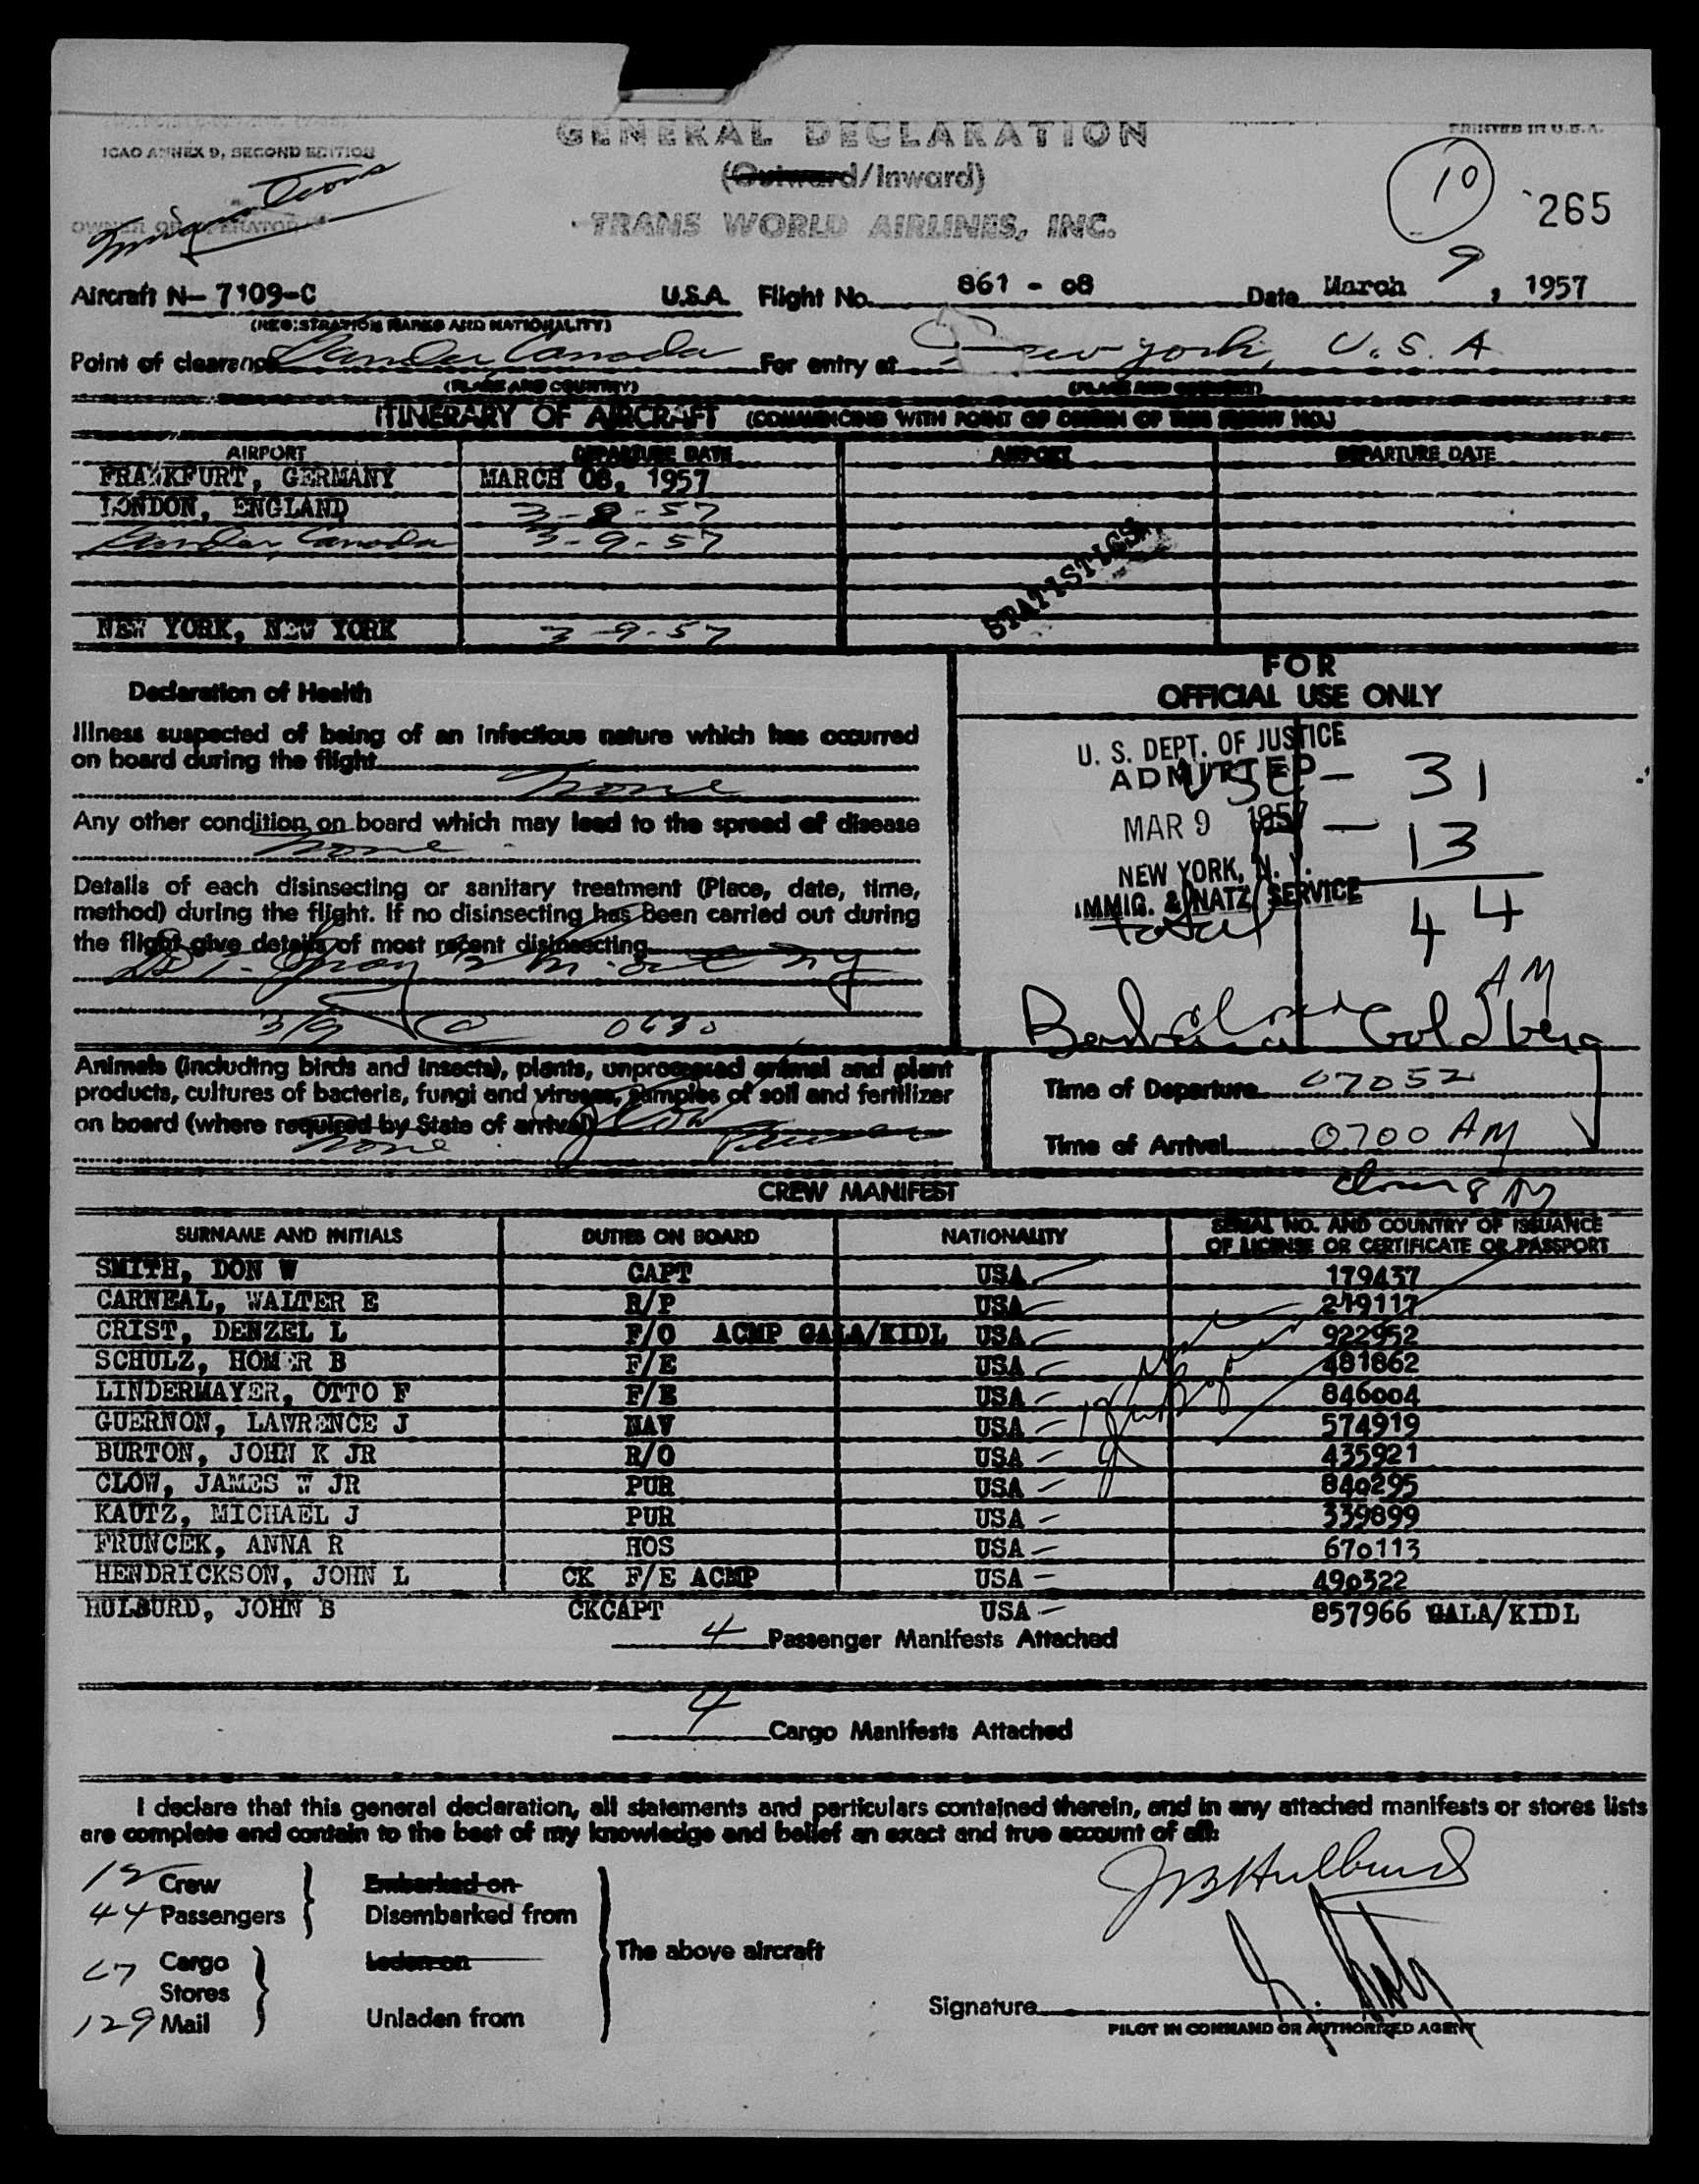 PRINTED IN U.S.A.
ICAO ANNEX 9, SECOND EDITION
GENERAL DECLARATION
(Outward/Inward)
10
265
OWNER OR OPERATOR
TRANS WORLD AIRLINES, INC.
Aircraft N- 7109-C U.S.A. Flight No. 861 - 08 Date March 9, 1957
(REGISTRATION MARKS AND NATIONALITY)
Point of clearance Gander, Canada For entry at New York, U.S.A
(PLACE AND COUNTRY) (PLACE AND COUNTRY)
ITINERARY OF AIRCRAFT (COMMENCING WITH POINT OF ORIGIN OF THIS FLIGHT NO.)
AIRPORT DEPARTURE DATE AIRPORT DEPARTURE DATE
FRANKFURT, GERMANY MARCH 08, 1957
LONDON, ENGLAND 3-8-57
Gander, Canada 3-9-57
STATISTICS
NEW YORK, NEW YORK 3-9-57
Declaration of Health
Illness suspected of being of an infectious nature which has occurred
on board during the flight
None
Any other condition on board which may lead to the spread of disease
None
Details of each disinsecting or sanitary treatment (Place, date, time,
method) during the flight. If no disinsecting has been carried out during
the flight give details of most recent disinsecting
3/9 0630
Animals (including birds and insects), plants, unprocessed animal and plant
products, cultures of bacteria, fungi and viruses, samples of soil and fertilizer
on board (where required by State of arrival)
None
FOR
OFFICIAL USE ONLY
U. S. DEPT. OF JUSTICE
ADMITTED
USC - 31
MAR 9 1957
- 13
NEW YORK, N. Y.
IMMIG. & NATZ. SERVICE
total 44
AM
Goldberg
Time of Departure 0705Z
Time of Arrival 0700 AM
CREW MANIFEST
SURNAME AND INITIALS DUTIES ON BOARD NATIONALITY SERIAL NO. AND COUNTRY OF ISSUANCE
OF LICENSE OR CERTIFICATE OR PASSPORT
SMITH, DON W CAPT USA 179437
CARNEAL, WALTER E R/P USA 249117
CRIST, DENZEL L F/O ACMP GALA/KIDL USA 922952
SCHULZ, HOMER B F/E USA 481862
LINDERMAYER, OTTO F F/E USA 846004
GUERNON, LAWRENCE J NAV USA 574919
BURTON, JOHN K JR R/O USA 435921
CLOW, JAMES W JR PUR USA 840295
KAUTZ, MICHAEL J PUR USA 339899
FRUNCEK, ANNA R HOS USA 670113
HENDRICKSON, JOHN L CK F/E ACMP USA 490322
HULBURD, JOHN B CKCAPT USA 857966 GALA/KIDL
4 Passenger Manifests Attached
4 Cargo Manifests Attached
I declare that this general declaration, all statements and particulars contained therein, and in any attached manifests or stores lists
are complete and contain to the best of my knowledge and belief an exact and true account of all:
12 Crew Embarked on
44 Passengers Disembarked from
The above aircraft
Cargo Laden on
Stores
129 Mail Unladen from
JB Hulburd
Signature
PILOT IN COMMAND OR AUTHORIZED AGENT